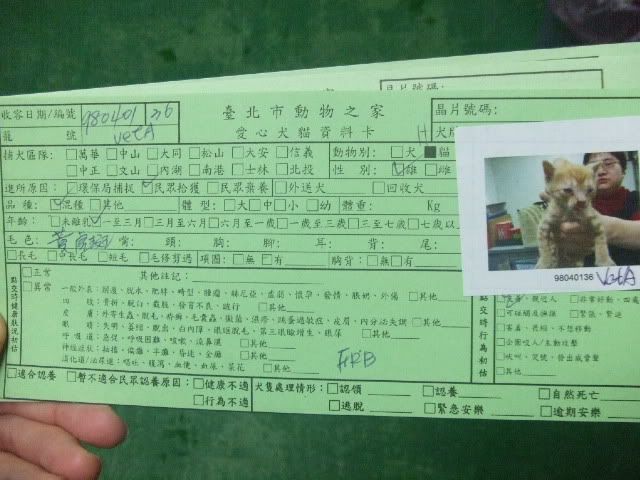 收容日期/編號 980401 36 臺北市動物之家 晶片號碼:
籠 號 VetA 愛心犬貓資料卡
捕犬區隊: □萬華 □中山 □大同 □松山 □大安 □信義 動物別: □犬 ■貓
□中正 □文山 □內湖 □南港 □士林 □北投 性 別: ☑雄 □雌
進所原因: □環保局捕捉 ☑民眾拾獲 □民眾棄養 □外送犬 □回收犬
品 種: ☑混種 □其他 體 型: □大 □中 □小 □幼 體重: Kg
年齡: □未離乳 ☑一至三月 □三月至六月 □六月至一歲 □一歲至三歲 □三至七歲 □七歲以
毛 色: 嘴: 頭: 胸: 腳: 耳: 背: 尾:
□長毛 □半長毛 □短毛 □毛修剪過 項圈: □無 □有 胸背: □無 □有
98040136 VetA
點交時健康狀況初估 □正常 其他註記:
□異常 一般外表: 消瘦、脫水、肥胖、畸型、腫瘤、赫尼亞、虛弱、懷孕、發情、脹奶、外傷 □其他
四 肢: 骨折、脫臼、截肢、發育不良、跛行 □其他
皮 膚: 外寄生蟲、脫毛、痂癬、毛囊蟲、黴菌、濕疹、跳蚤過敏症、皮屑、內分泌失調 □其他
眼 睛: 失明、萎縮、脫出、白內障、眼睫脫毛、第三眼瞼增生、眼屎 □其他
呼吸道: 急促、呼吸困難、咳嗽、流鼻膿 □其他
神經症狀: 抽搐、痙攣、半癱、昏迷、全癱 □其他
消化道/泌尿道: 嘔吐、腹瀉、血便、血尿、菜花 □其他
FRB
點交時行為初估 親近人 □非常好動、四處
□可碰觸或撫摸 □緊張、緊迫
□害羞、畏縮、不想移動
□企圖咬人/主動攻擊
□吠叫、哭號、發出威脅聲
□其他
□適合認養 □暫不適合民眾認養原因: □健康不適 犬隻處理情形: □認領 □認養 □自然死亡
□行為不適 □逃脫 □緊急安樂 □逾期安樂